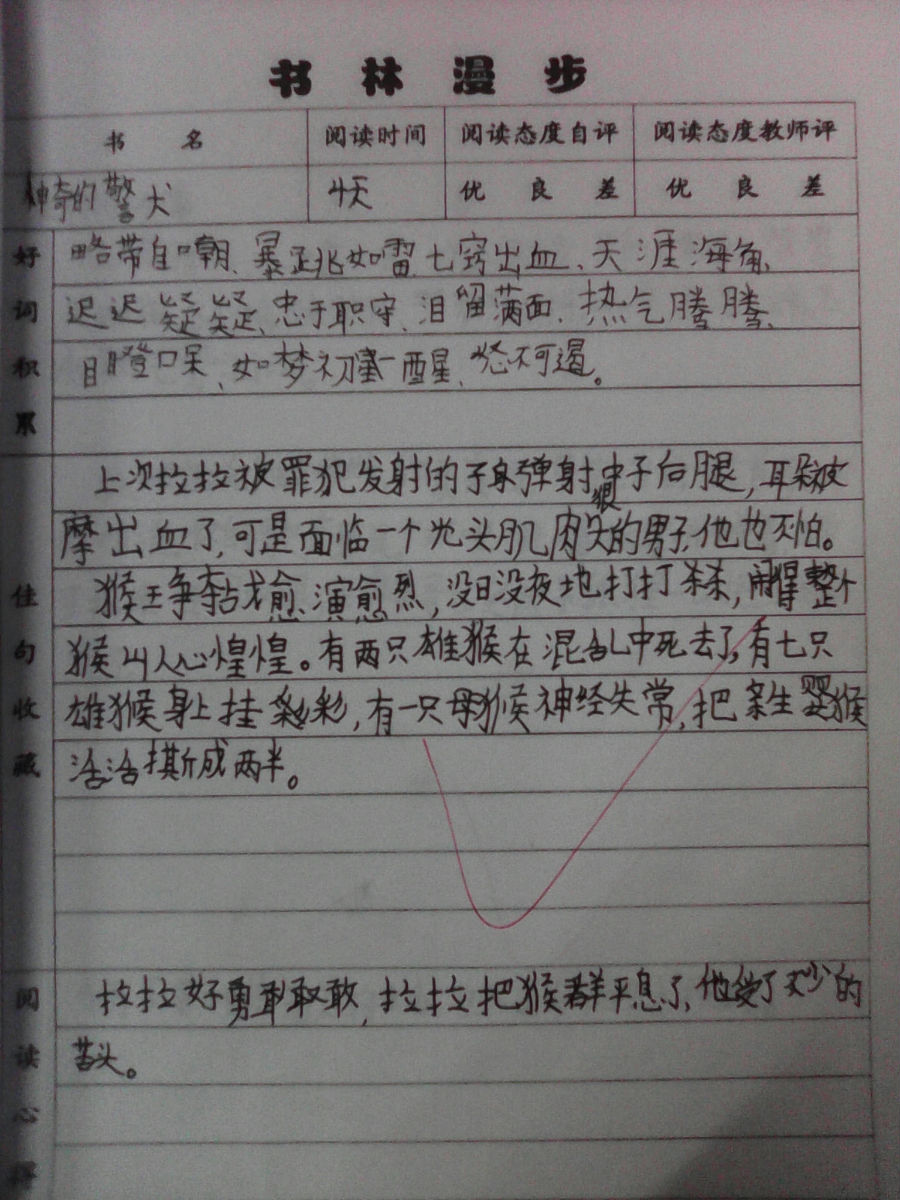 书林漫步
书名 阅读时间 阅读态度自评 阅读态度教师评
神奇的警犬 4天 优 良 差 优 良 差
好词积累
略带自嘲、暴跳如雷七窍出血、天涯海角、
迟迟疑疑、忠于职守、泪留满面、热气腾腾、
目瞪口呆、如梦初醒、怒不可遏。
佳句收藏
上次拉拉被罪犯发射的子弹射中了后腿，耳朵被
摩出血了，可是面临一个光头肌肉尖的男子，他也不怕。
猴王争夺战愈演愈烈，没日没夜地打打杀杀，闹得整个
猴山人心惶惶。有两只雄猴在混乱中死去了，有七只
雄猴身上挂彩，有一只母猴神经失常，把亲生婴猴
活活撕成两半。
阅读心得
拉拉好勇敢敢，拉拉把猴群平息了，他受了不少的
苦头。